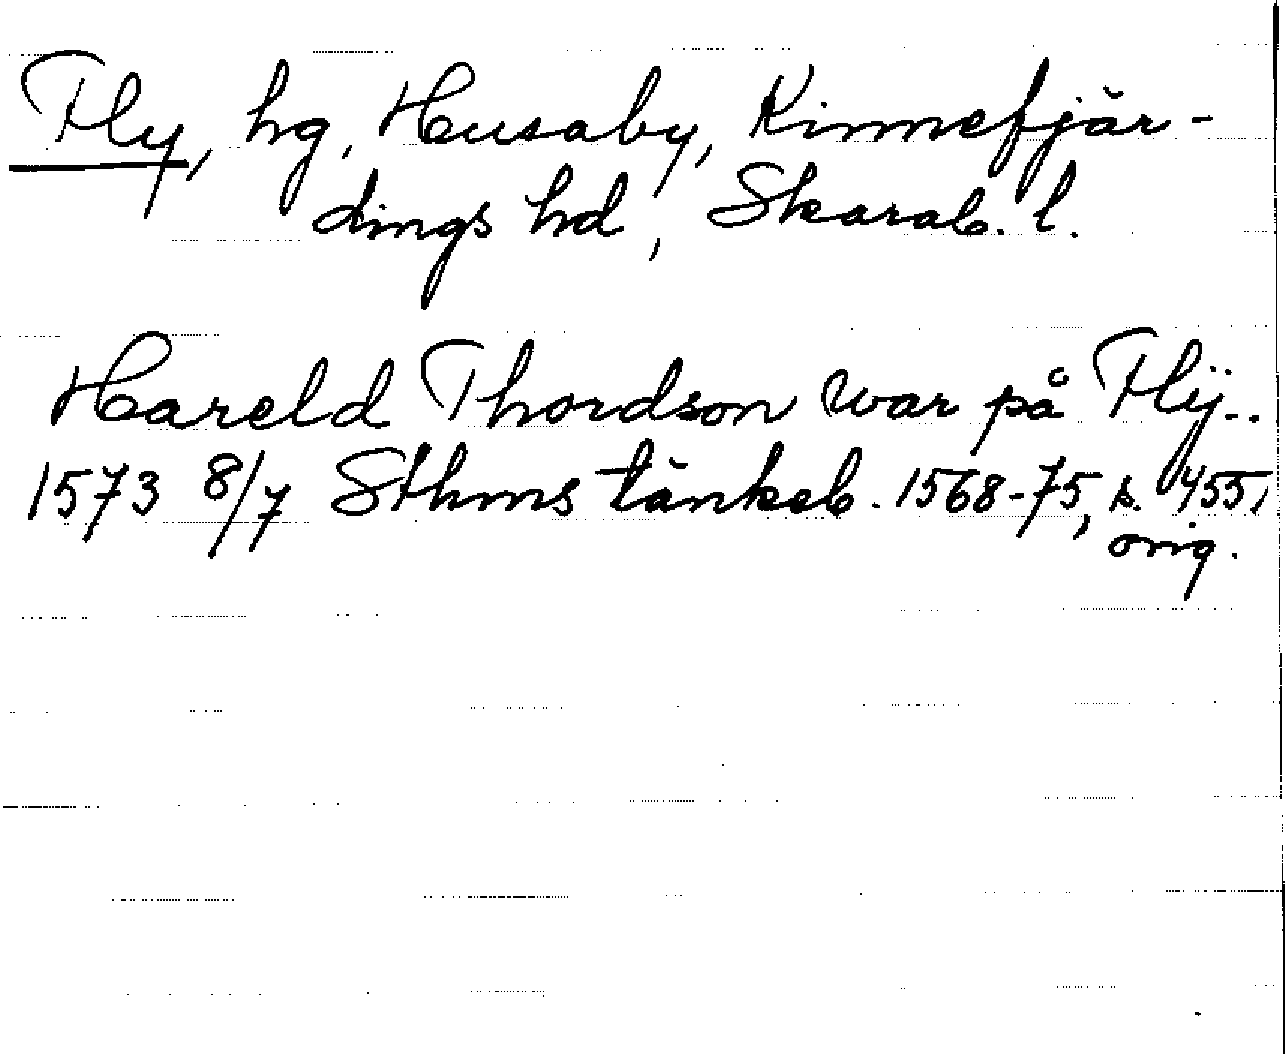 Fly, hg, Husaby, Kinnefjär-
dings hd, Skarab. l.
Hareld Thordson war på Flÿ..
1573 8/7 Sthms tänkeb. 1568-75, s. 455,
orig.